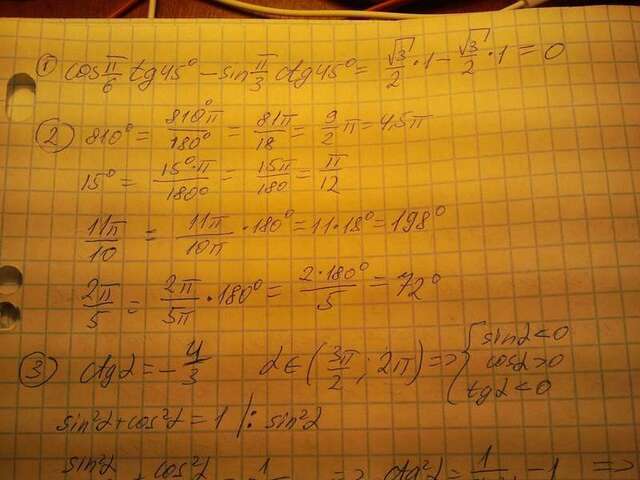 ① cos π/6 tg45° - sin π/3 ctg45° = √3/2 · 1 - √3/2 · 1 = 0
② 810° = 810°π/180° = 81π/18 = 9/2 π = 4,5π
15° = 15°·π/180° = 15π/180 = π/12
11π/10 = 11π/10π · 180° = 11·18° = 198°
2π/5 = 2π/5π · 180° = 2·180°/5 = 72°
③ ctgα = -4/3 α ∈ (3π/2; 2π) => { sinα<0
cosα>0
tgα<0
sin²α + cos²α = 1 |: sin²α
sin²α + cos²α = 1 => ctg²α = 1 - 1 =>